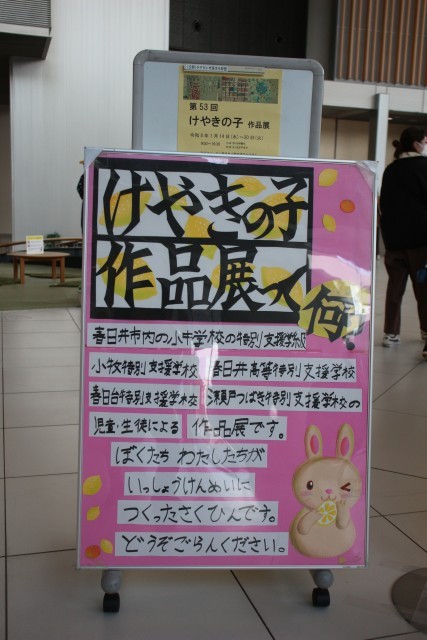 第53回
けやきの子 作品展
けやきの子
作品展って
何?
春日井市内の小中学校の特別支援学級
小牧特別支援学校 春日井高等特別支援学校
春日台特別支援学校 瀬戸つばき特別支援学校の
児童・生徒による 作品展です。
ぼくたち わたしたちが
いっしょうけんめいに
つくったさくひんです。
どうぞごらんください。